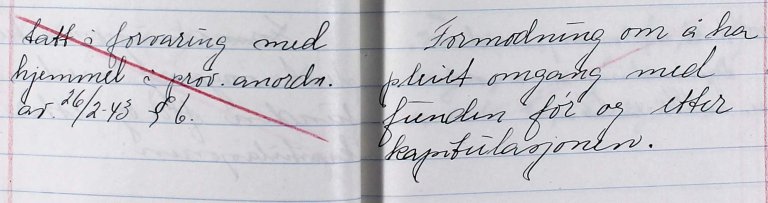 tatt i forvaring med
hjemmel i prov. anordn.
av. 26/2-43 § 6.
Formodning om å ha
pleiet omgang med
fienden før og etter
kapitulasjonen.